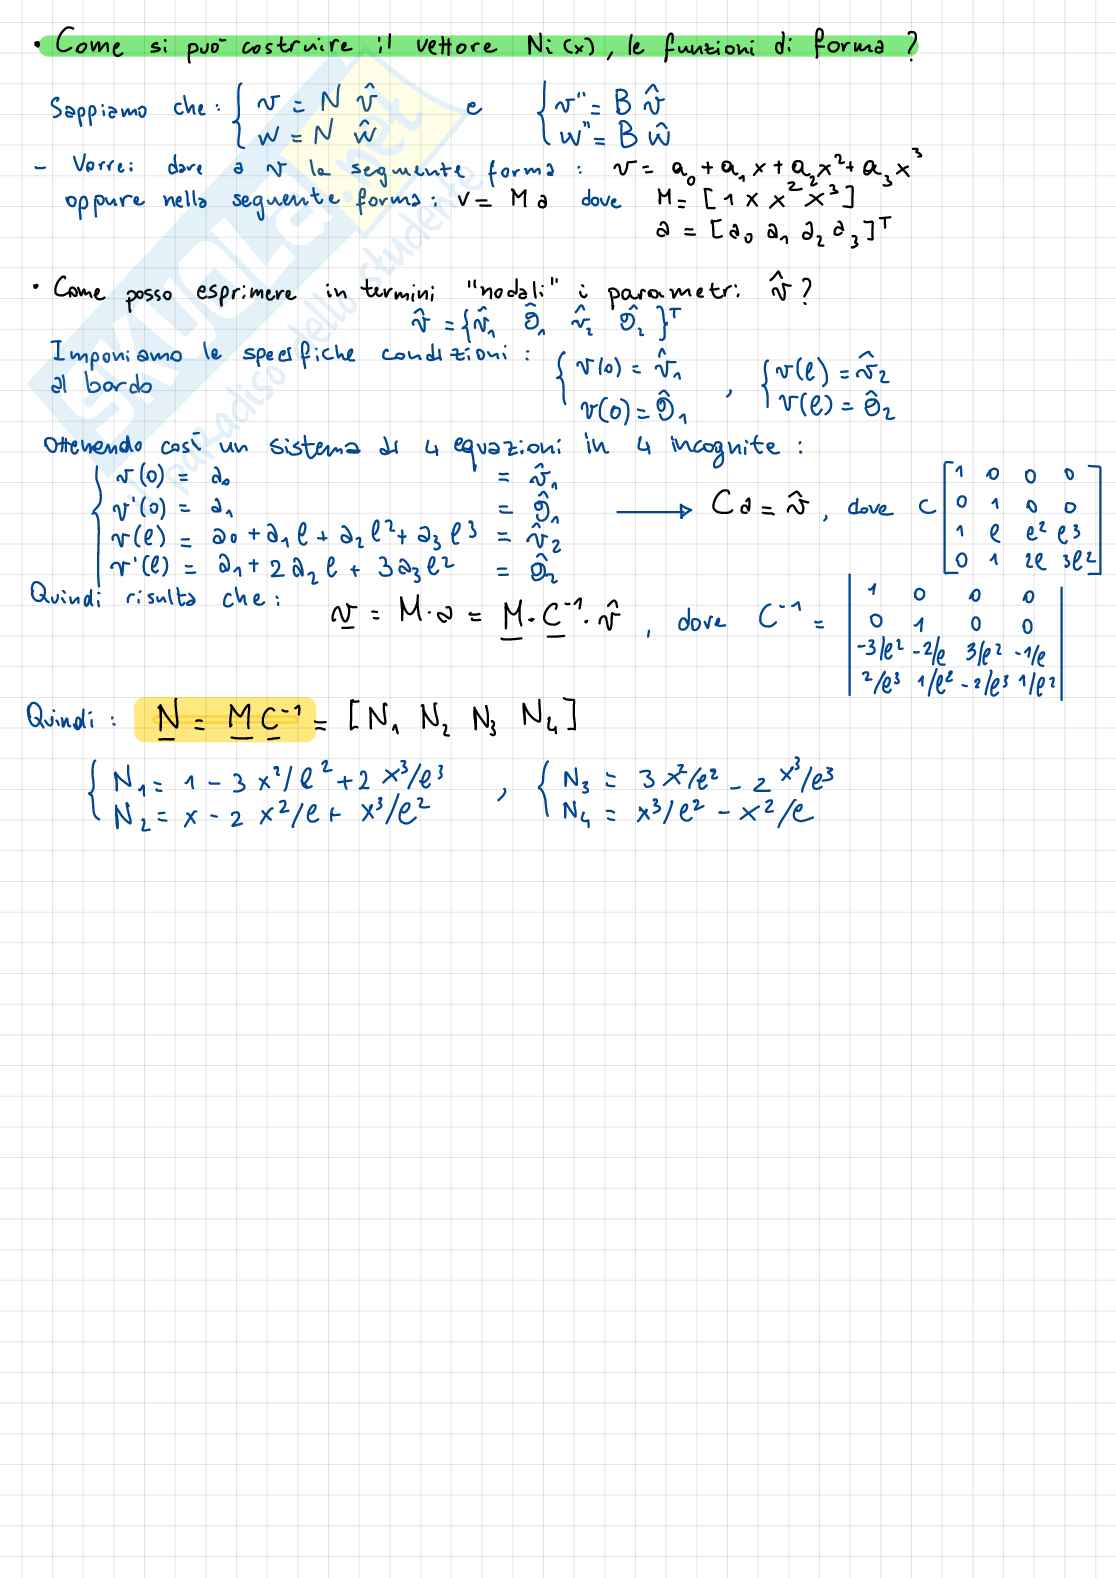 • Come si può costruire il vettore Ni(x), le funzioni di forma?
Sappiamo che: { v = N v̂ e { v" = B v̂
w = N ŵ w" = B ŵ
- Vorrei dare a v la seguente forma: v = a₀ + a₁x + a₂x² + a₃x³
oppure nella seguente forma: v = M a dove M = [1 x x² x³]
a = [a₀ a₁ a₂ a₃]ᵀ
• Come posso esprimere in termini "nodali" i parametri v̂?
v̂ = {v̂₁ θ̂₁ v̂₂ θ̂₂}ᵀ
Imponiamo le specifiche condizioni: { v(0) = v̂₁ , { v(l) = v̂₂
al bordo v(0) = θ̂₁ v(l) = θ̂₂
Ottenendo così un sistema di 4 equazioni in 4 incognite:
v(0) = a₀ = v̂₁
v'(0) = a₁ = θ̂₁ → C a = v̂, dove C [1 0 0 0
0 1 0 0
v(l) = a₀ + a₁l + a₂l² + a₃l³ = v̂₂ 1 l l² l³
v'(l) = a₁ + 2a₂l + 3a₃l² = θ̂₂ 0 1 2l 3l²]
Quindi risulta che: v = M·a = M·C⁻¹·v̂, dove C⁻¹ = | 1 0 0 0
0 1 0 0
-3/l² -2/l 3/l² -1/l
2/l³ 1/l² -2/l³ 1/l² |
Quindi: N = M C⁻¹ = [N₁ N₂ N₃ N₄]
{ N₁ = 1 - 3x²/l² + 2x³/l³ , { N₃ = 3x²/l² - 2x³/l³
N₂ = x - 2x²/l + x³/l² N₄ = x³/l² - x²/l
SKUOLA.net
il paradiso dello studente